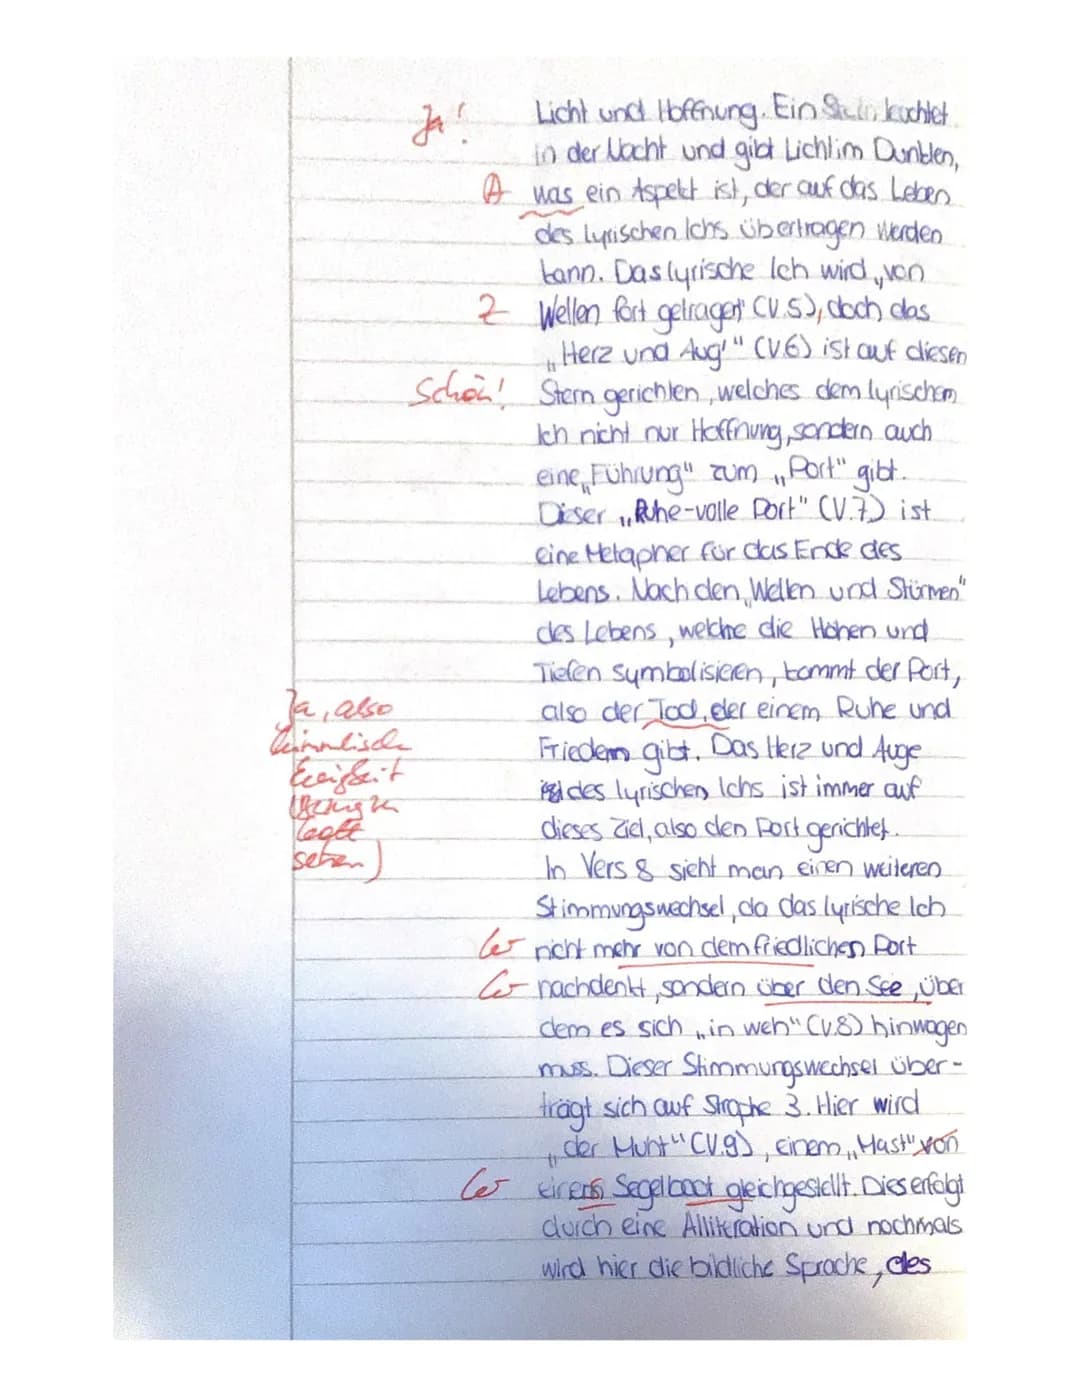 Ja!
Licht und Hoffnung. Ein leuchtet
in der Nacht und gibt Licht im Dunklen,
A was ein Aspekt ist, der auf das Leben
des lyrischen Ichs übertragen werden
kann. Das lyrische Ich wird „von
Z Wellen fort getragen" (V.5), doch das
„Herz und Aug'" (V.6) ist auf diesen
Schön! Stern gerichten, welches dem lyrischem
Ich nicht nur Hoffnung, sondern auch
eine „Führung" zum „Port" gibt.
Dieser „Ruhe-volle Port" (V.7) ist
eine Metapher für das Ende des
Lebens. Nach den „Wellen und Stürmen"
des Lebens, welche die Höhen und
Tiefen symbolisieren, kommt der Port,
Ja, also
also der Tod, der einem Ruhe und
himmlische
Frieden gibt. Das Herz und Auge
Ewigkeit
des lyrischen Ichs ist immer auf
dieses Ziel, also den Port gerichtet.
sehen)
In Vers 8 sieht man einen weiteren
Stimmungswechsel, da das lyrische Ich
nicht mehr von dem friedlichen Port
nachdenkt, sondern über den See, über
dem es sich „in weh" (V.8) hinwagen
muss. Dieser Stimmungswechsel über-
trägt sich auf Strophe 3. Hier wird
„der Muht" (V.9), einem „Mast" von
Segelboot gleichgestellt. Dies erfolgt
durch eine Alliteration und nochmals
wird hier die bildliche Sprache, des